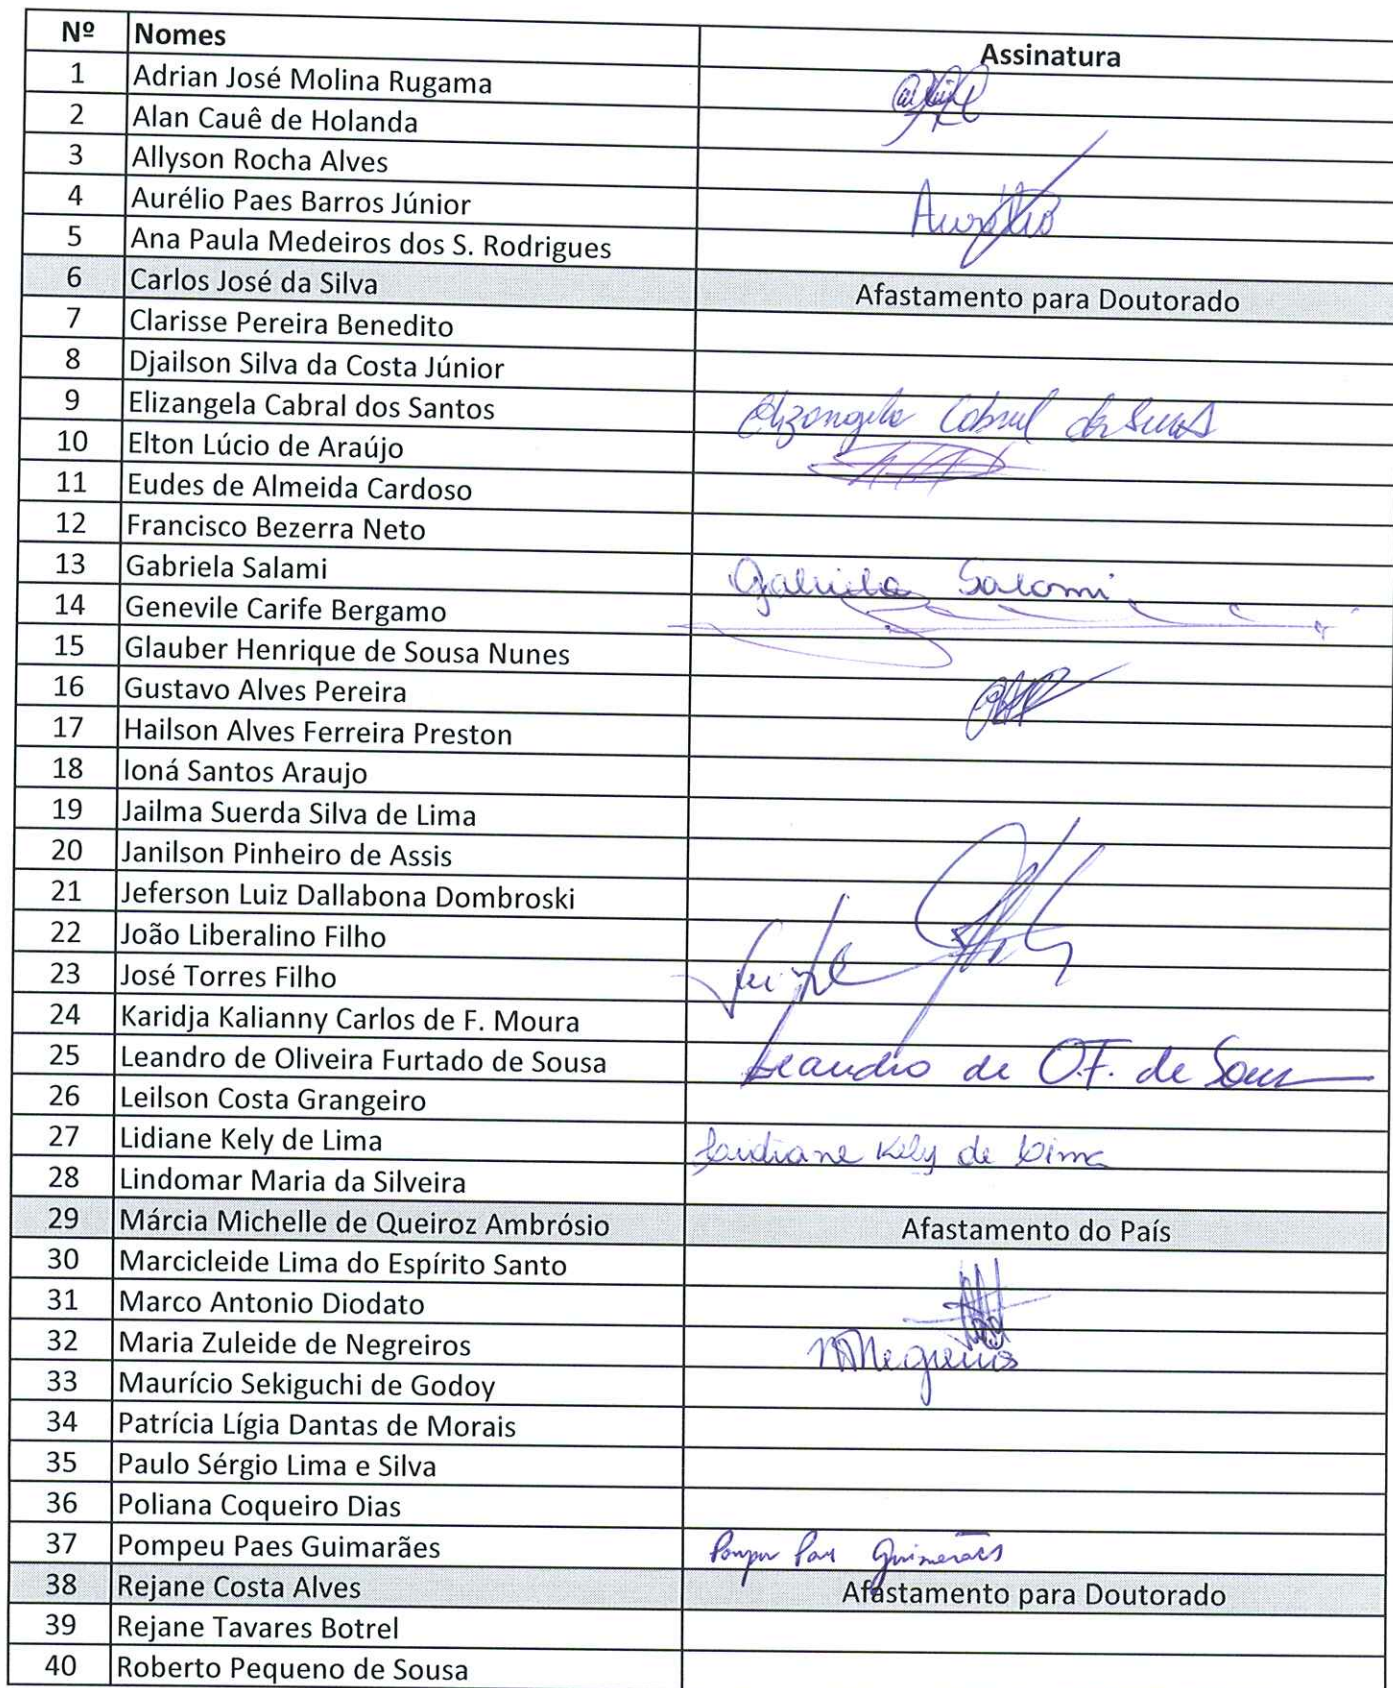 Nº Nomes Assinatura
1 Adrian José Molina Rugama
2 Alan Cauê de Holanda
3 Allyson Rocha Alves
4 Aurélio Paes Barros Júnior Aurélio
5 Ana Paula Medeiros dos S. Rodrigues
6 Carlos José da Silva Afastamento para Doutorado
7 Clarisse Pereira Benedito
8 Djailson Silva da Costa Júnior
9 Elizangela Cabral dos Santos Elizangela Cabral dos Santos
10 Elton Lúcio de Araújo
11 Eudes de Almeida Cardoso
12 Francisco Bezerra Neto
13 Gabriela Salami Gabriela Salami
14 Genevile Carife Bergamo
15 Glauber Henrique de Sousa Nunes
16 Gustavo Alves Pereira
17 Hailson Alves Ferreira Preston
18 Ioná Santos Araujo
19 Jailma Suerda Silva de Lima
20 Janilson Pinheiro de Assis
21 Jeferson Luiz Dallabona Dombroski
22 João Liberalino Filho
23 José Torres Filho
24 Karidja Kalianny Carlos de F. Moura
25 Leandro de Oliveira Furtado de Sousa Leandro de O.F. de Sousa
26 Leilson Costa Grangeiro
27 Lidiane Kely de Lima Lidiane Kely de Lima
28 Lindomar Maria da Silveira
29 Márcia Michelle de Queiroz Ambrósio Afastamento do País
30 Marcicleide Lima do Espírito Santo
31 Marco Antonio Diodato
32 Maria Zuleide de Negreiros MNegreiros
33 Maurício Sekiguchi de Godoy
34 Patrícia Lígia Dantas de Morais
35 Paulo Sérgio Lima e Silva
36 Poliana Coqueiro Dias
37 Pompeu Paes Guimarães Pompeu Paes Guimarães
38 Rejane Costa Alves Afastamento para Doutorado
39 Rejane Tavares Botrel
40 Roberto Pequeno de Sousa